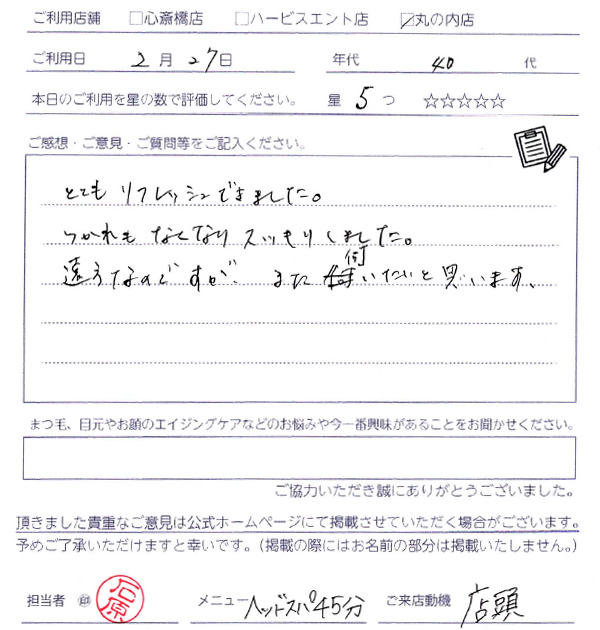 ご利用店舗 □心斎橋店 □ハービスエント店 ☑丸の内店
ご利用日 2月27日 年代 40代
本日のご利用を星の数で評価してください。 星 5つ ☆☆☆☆☆
ご感想・ご意見・ご質問等をご記入ください。
とてもリフレッシュできました。
つかれもなくなりスッキリしました。
遠方なのですが、また行いたいと思います。
まつ毛、目元やお顔のエイジングケアなどのお悩みや今一番興味があることをお聞かせください。
ご協力いただき誠にありがとうございました。
頂きました貴重なご意見は公式ホームページにて掲載させていただく場合がございます。
予めご了承いただけますと幸いです。(掲載の際にはお名前の部分は掲載いたしません。)
担当者 ㊞ 石原 メニュー ヘッドスパ45分 ご来店動機 店頭